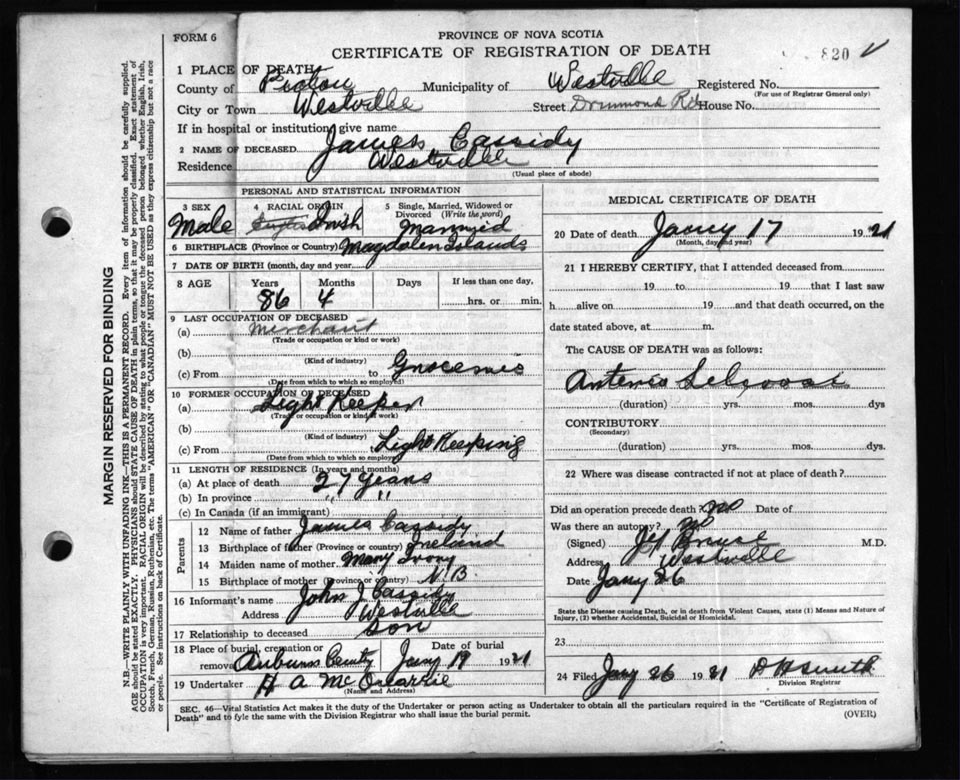 FORM 6
PROVINCE OF NOVA SCOTIA
CERTIFICATE OF REGISTRATION OF DEATH
820
1 PLACE OF DEATH
County of Pictou Municipality of Westville Registered No.
(For use of Registrar General only)
City or Town Westville Street Drummond Rd House No.
If in hospital or institution, give name
2 NAME OF DECEASED James Cassidy
Residence Westville
(Usual place of abode)
PERSONAL AND STATISTICAL INFORMATION
3 SEX Male
4 RACIAL ORIGIN Irish
5 Single, Married, Widowed or Divorced (Write the word) Married
6 BIRTHPLACE (Province or Country) Magdalen Islands
7 DATE OF BIRTH (month, day and year)
8 AGE Years 86 Months 4 Days If less than one day, hrs. or min.
9 LAST OCCUPATION OF DECEASED
(a) Merchant
(Trade or occupation or kind of work)
(b)
(Kind of industry)
(c) From to Groceries
(Date from which to which so employed)
10 FORMER OCCUPATION OF DECEASED
(a) Light Keeper
(Trade or occupation or kind of work)
(b)
(Kind of industry)
(c) From Light Keeping
(Date from which to which so employed)
11 LENGTH OF RESIDENCE (In years and months)
(a) At place of death 27 Years
(b) In province " "
(c) In Canada (if an immigrant)
Parents
12 Name of father James Cassidy
13 Birthplace of father (Province or country) Ireland
14 Maiden name of mother Mary
15 Birthplace of mother (Province or country) N.B.
16 Informant's name John J Cassidy
Address Westville
17 Relationship to deceased Son
18 Place of burial, cremation or removal Auburn Cemty Date of burial Jany 19 1921
19 Undertaker H A
(Name and Address)
MEDICAL CERTIFICATE OF DEATH
20 Date of death Jany 17 1921
(Month, day and year)
21 I HEREBY CERTIFY, that I attended deceased from
19 to 19 that I last saw
h alive on 19 and that death occurred, on the
date stated above, at m.
The CAUSE OF DEATH was as follows:
(duration) yrs. mos. dys
CONTRIBUTORY
(Secondary)
(duration) yrs. mos. dys.
22 Where was disease contracted if not at place of death?
Did an operation precede death? no Date of
Was there an autopsy? no
(Signed) M.D.
Address Westville
Date Jany 26
State the Disease causing Death, or in death from Violent Causes, state (1) Means and Nature of
Injury, (2) whether Accidental, Suicidal or Homicidal.
23
24 Filed Jany 26 1921 D H Smith
Division Registrar
SEC. 46—Vital Statistics Act makes it the duty of the Undertaker or person acting as Undertaker to obtain all the particulars required in the "Certificate of Registration of
Death" and to fyle the same with the Division Registrar who shall issue the burial permit.
(OVER)
MARGIN RESERVED FOR BINDING
N.B.—WRITE PLAINLY WITH UNFADING INK—THIS IS A PERMANENT RECORD. Every item of information should be carefully supplied.
AGE should be stated EXACTLY. PHYSICIANS should STATE CAUSE OF DEATH in plain terms, so that it may be properly classified. Exact statement of
OCCUPATION is very important. RACIAL ORIGIN will be described by stating to what people or tongue the deceased person belonged whether English, Irish,
Scotch, French, German, Russian, Ruthenian, etc. The terms "AMERICAN" OR "CANADIAN" MUST NOT BE USED as they express citizenship but not a race
or people. See instructions on back of Certificate.